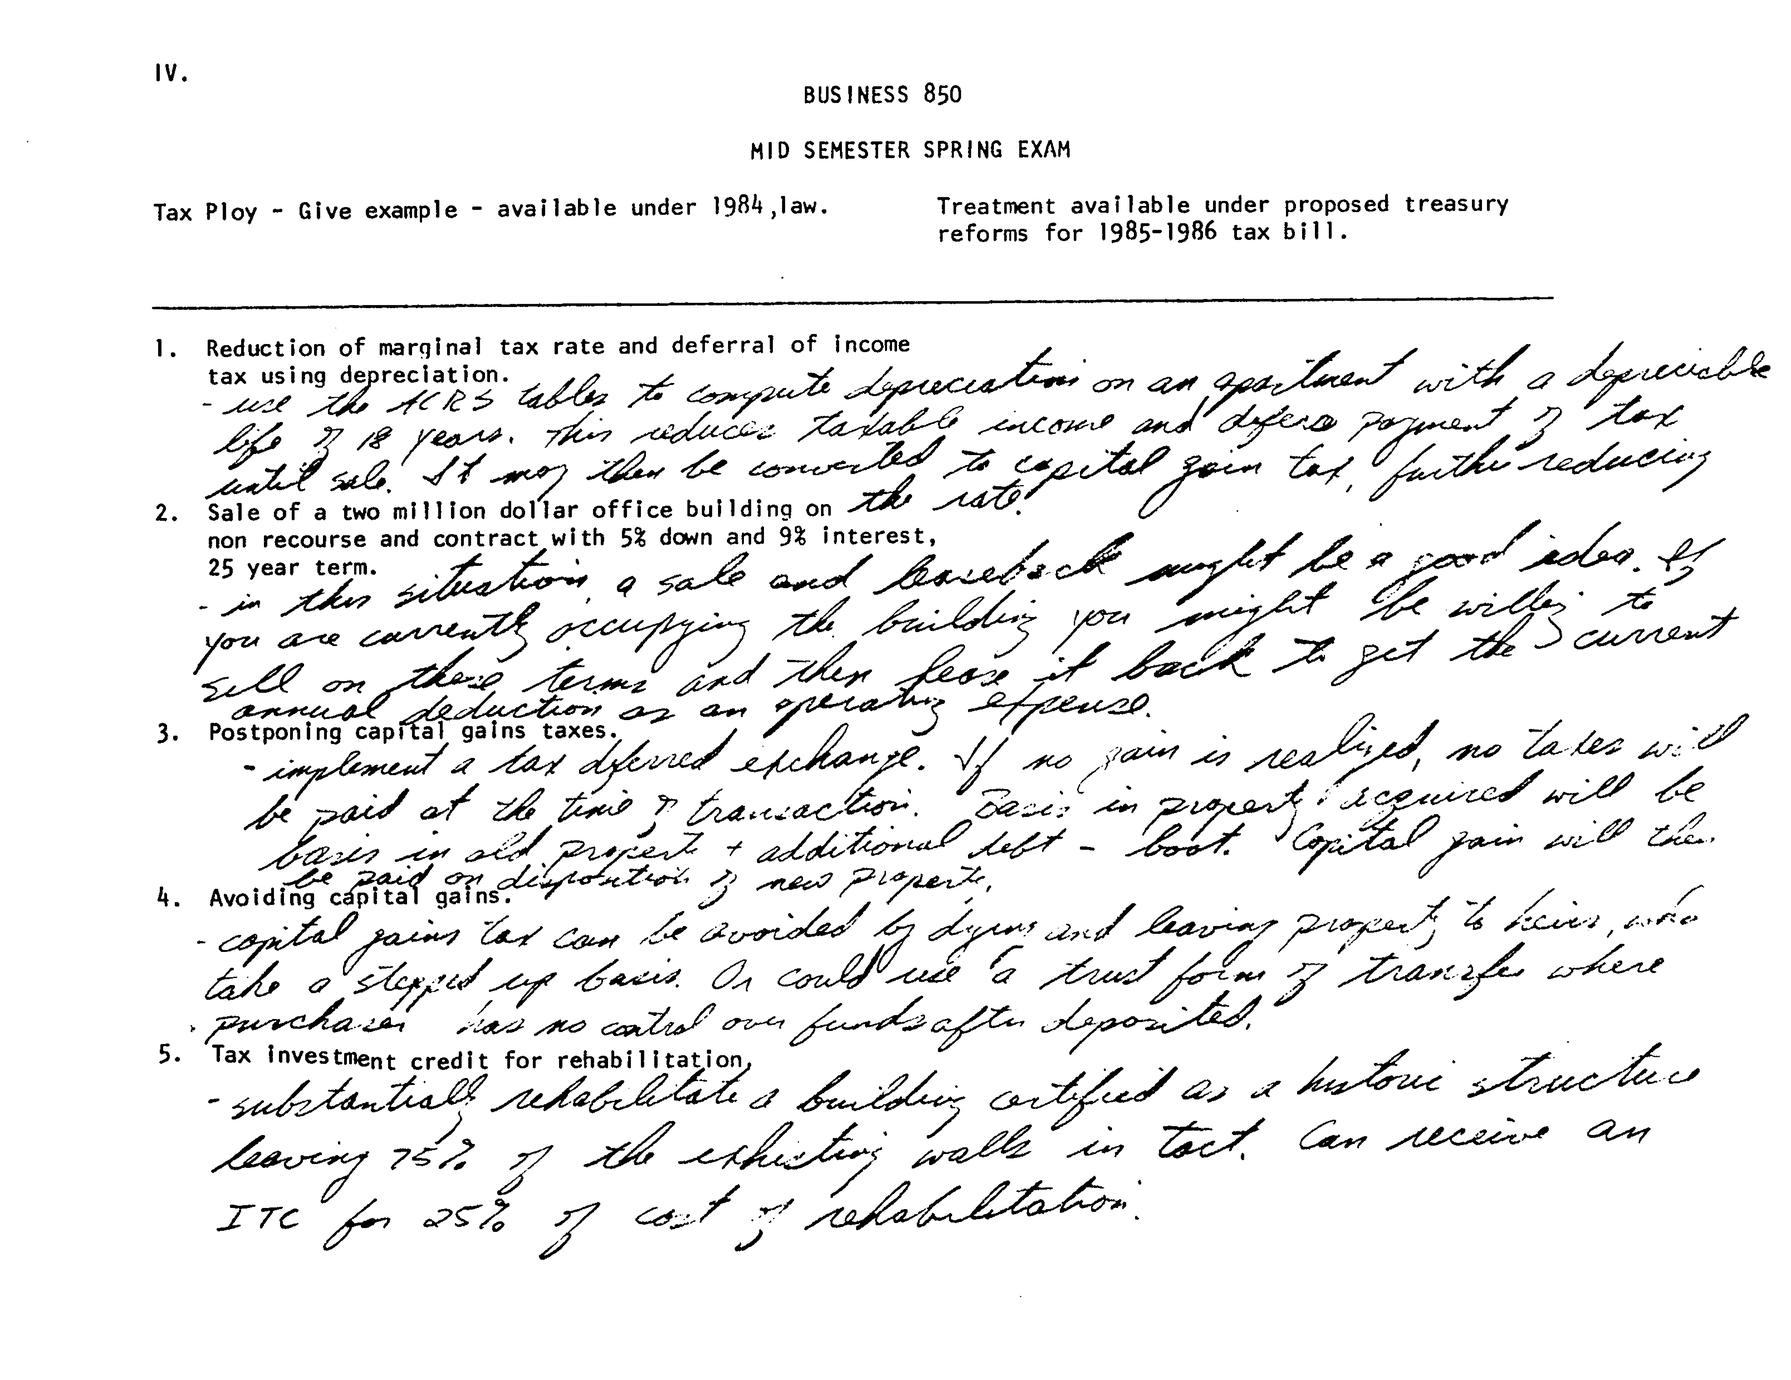 IV.
BUSINESS 850
MID SEMESTER SPRING EXAM
Tax Ploy - Give example - available under 1984,law.
Treatment available under proposed treasury
reforms for 1985-1986 tax bill.
1. Reduction of marginal tax rate and deferral of income
tax using depreciation.
- use the ACRS tables to compute depreciation on an apartment with a depreciable
life of 18 years. This reduces taxable income and defers payment of tax
until sale. It may then be converted to capital gain tax, further reducing
the rate.
2. Sale of a two million dollar office building on
non recourse and contract with 5% down and 9% interest,
25 year term.
- in this situation, a sale and leaseback might be a good idea. If
you are currently occupying the building you might be willing to
sell on these terms and then lease it back to get the current
annual deduction as an operating expense.
3. Postponing capital gains taxes.
- implement a tax deferred exchange. If no gain is realized, no taxes will
be paid at the time of transaction. Basis in property acquired will be
basis in old property + additional debt - boot. Capital gain will then
be paid on disposition of new property.
4. Avoiding capital gains.
- capital gains tax can be avoided by dying and leaving property to heirs, who
take a stepped up basis. Or could use a trust form of transfer where
purchaser has no control over funds after deposited.
5. Tax investment credit for rehabilitation,
- substantially rehabilitate a building certified as a historic structure
leaving 75% of the exhisting walls in tact. Can receive an
ITC for 25% of cost of rehabilitation.